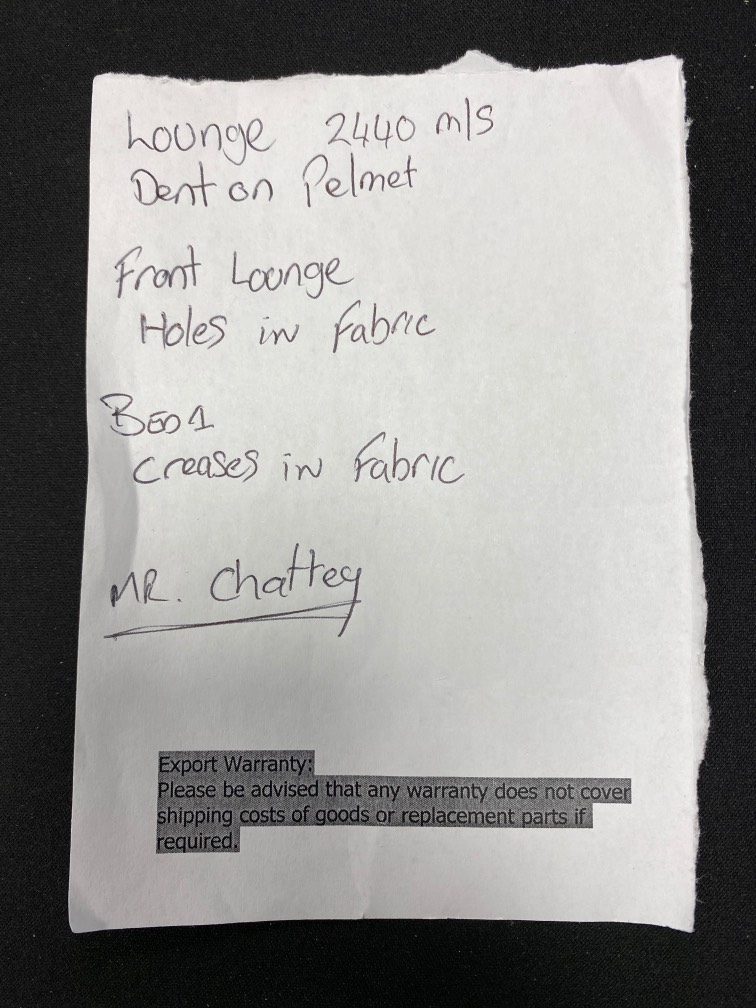 Lounge 2440 m/s
Dent on Pelmet
Front Lounge
Holes in Fabric
BED 1
Creases in Fabric
MR. Chattey
Export Warranty:
Please be advised that any warranty does not cover
shipping costs of goods or replacement parts if
required.